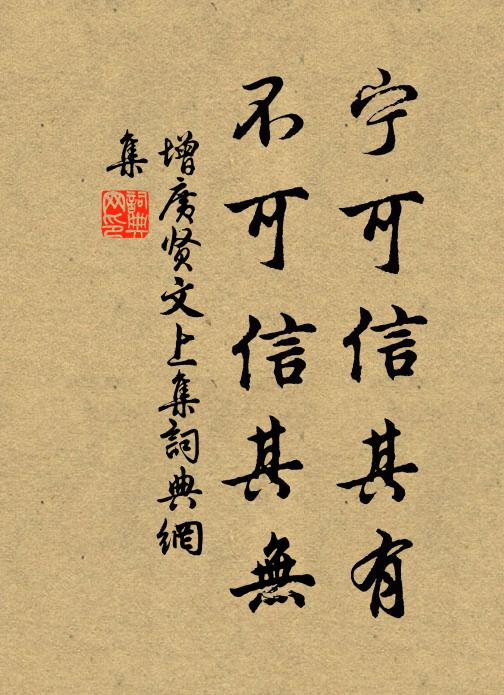 宁可信其有
不可信其無
增廣贤文上集詞典網
集
詞典
网印